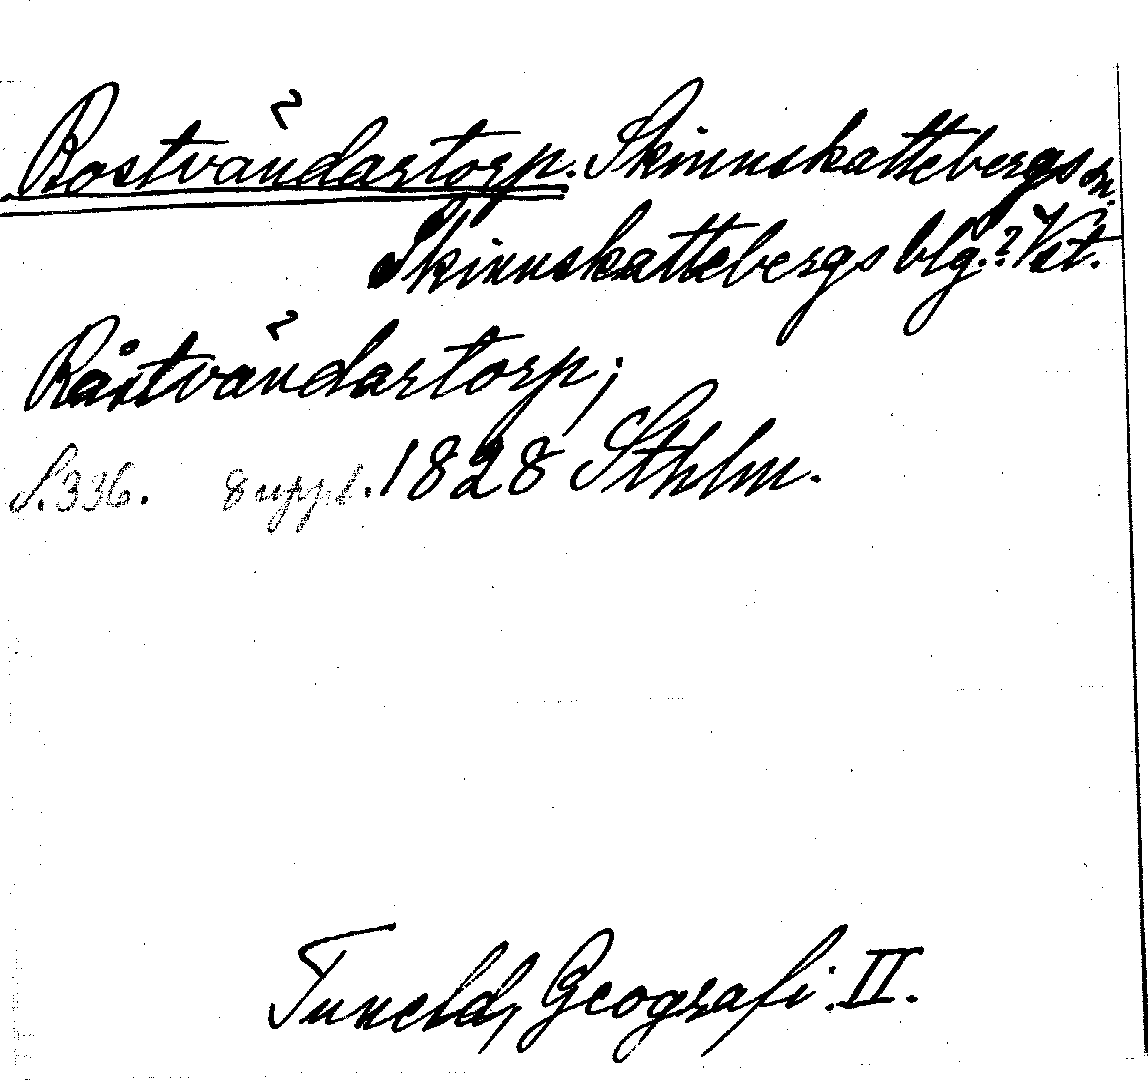 Rostvändartorp. Skinnskattebergs sn.
Skinnskattebergs blg.? Vst.
Råstvändartorp;
S. 336. 8 uppl. 1828 Sthlm.
Tuneld, Geografi. II.